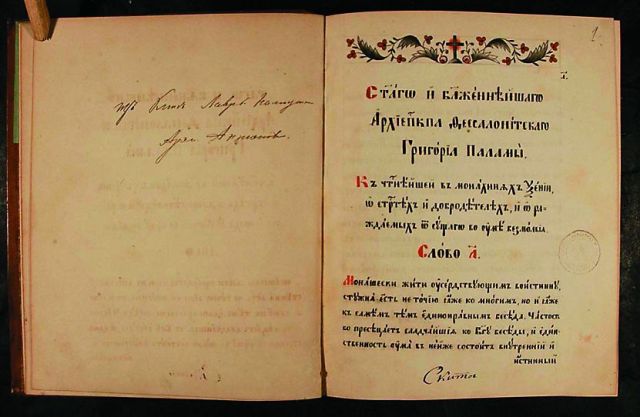 1.
Ст҃агѡ и҆ бл҃женнѣйшагѡ
А҆рхїеп҃кпа Ѳессалонїтскагѡ
Григорїа Паламы̀.
Къ чт҃нѣйшей въ мона́хинѧхъ Ѯе́нїи,
ѡ҆ стр҃те́хъ и҆ добродѣ́телехъ, и҆ ѡ҆ ра-
ждаемыхъ ѿ сꙋщагѡ во ᲂу҆мѣ̀ безмолвїѧ.
Сло́во а҃.
Мона́шески жи́ти ᲂу҆се́рдствꙋющимъ вои́стиннꙋ,
стꙋжна є҆́сть не то́чїю є҆́же ко мно́гимъ, но и҆ є҆́же
къ са́мѣмъ тѣ́мъ є҆динонра́внымъ бесѣ́да. Ча́стость
бо пресѣца́етъ владча́йшїѧ ко Бг҃ꙋ бесѣ́ды, и҆ є҆ди́н-
ственность ᲂу҆ма̀ въ не́йже состои́тъ внꙋ́треннїй и҆
и҆́стинный
Скита